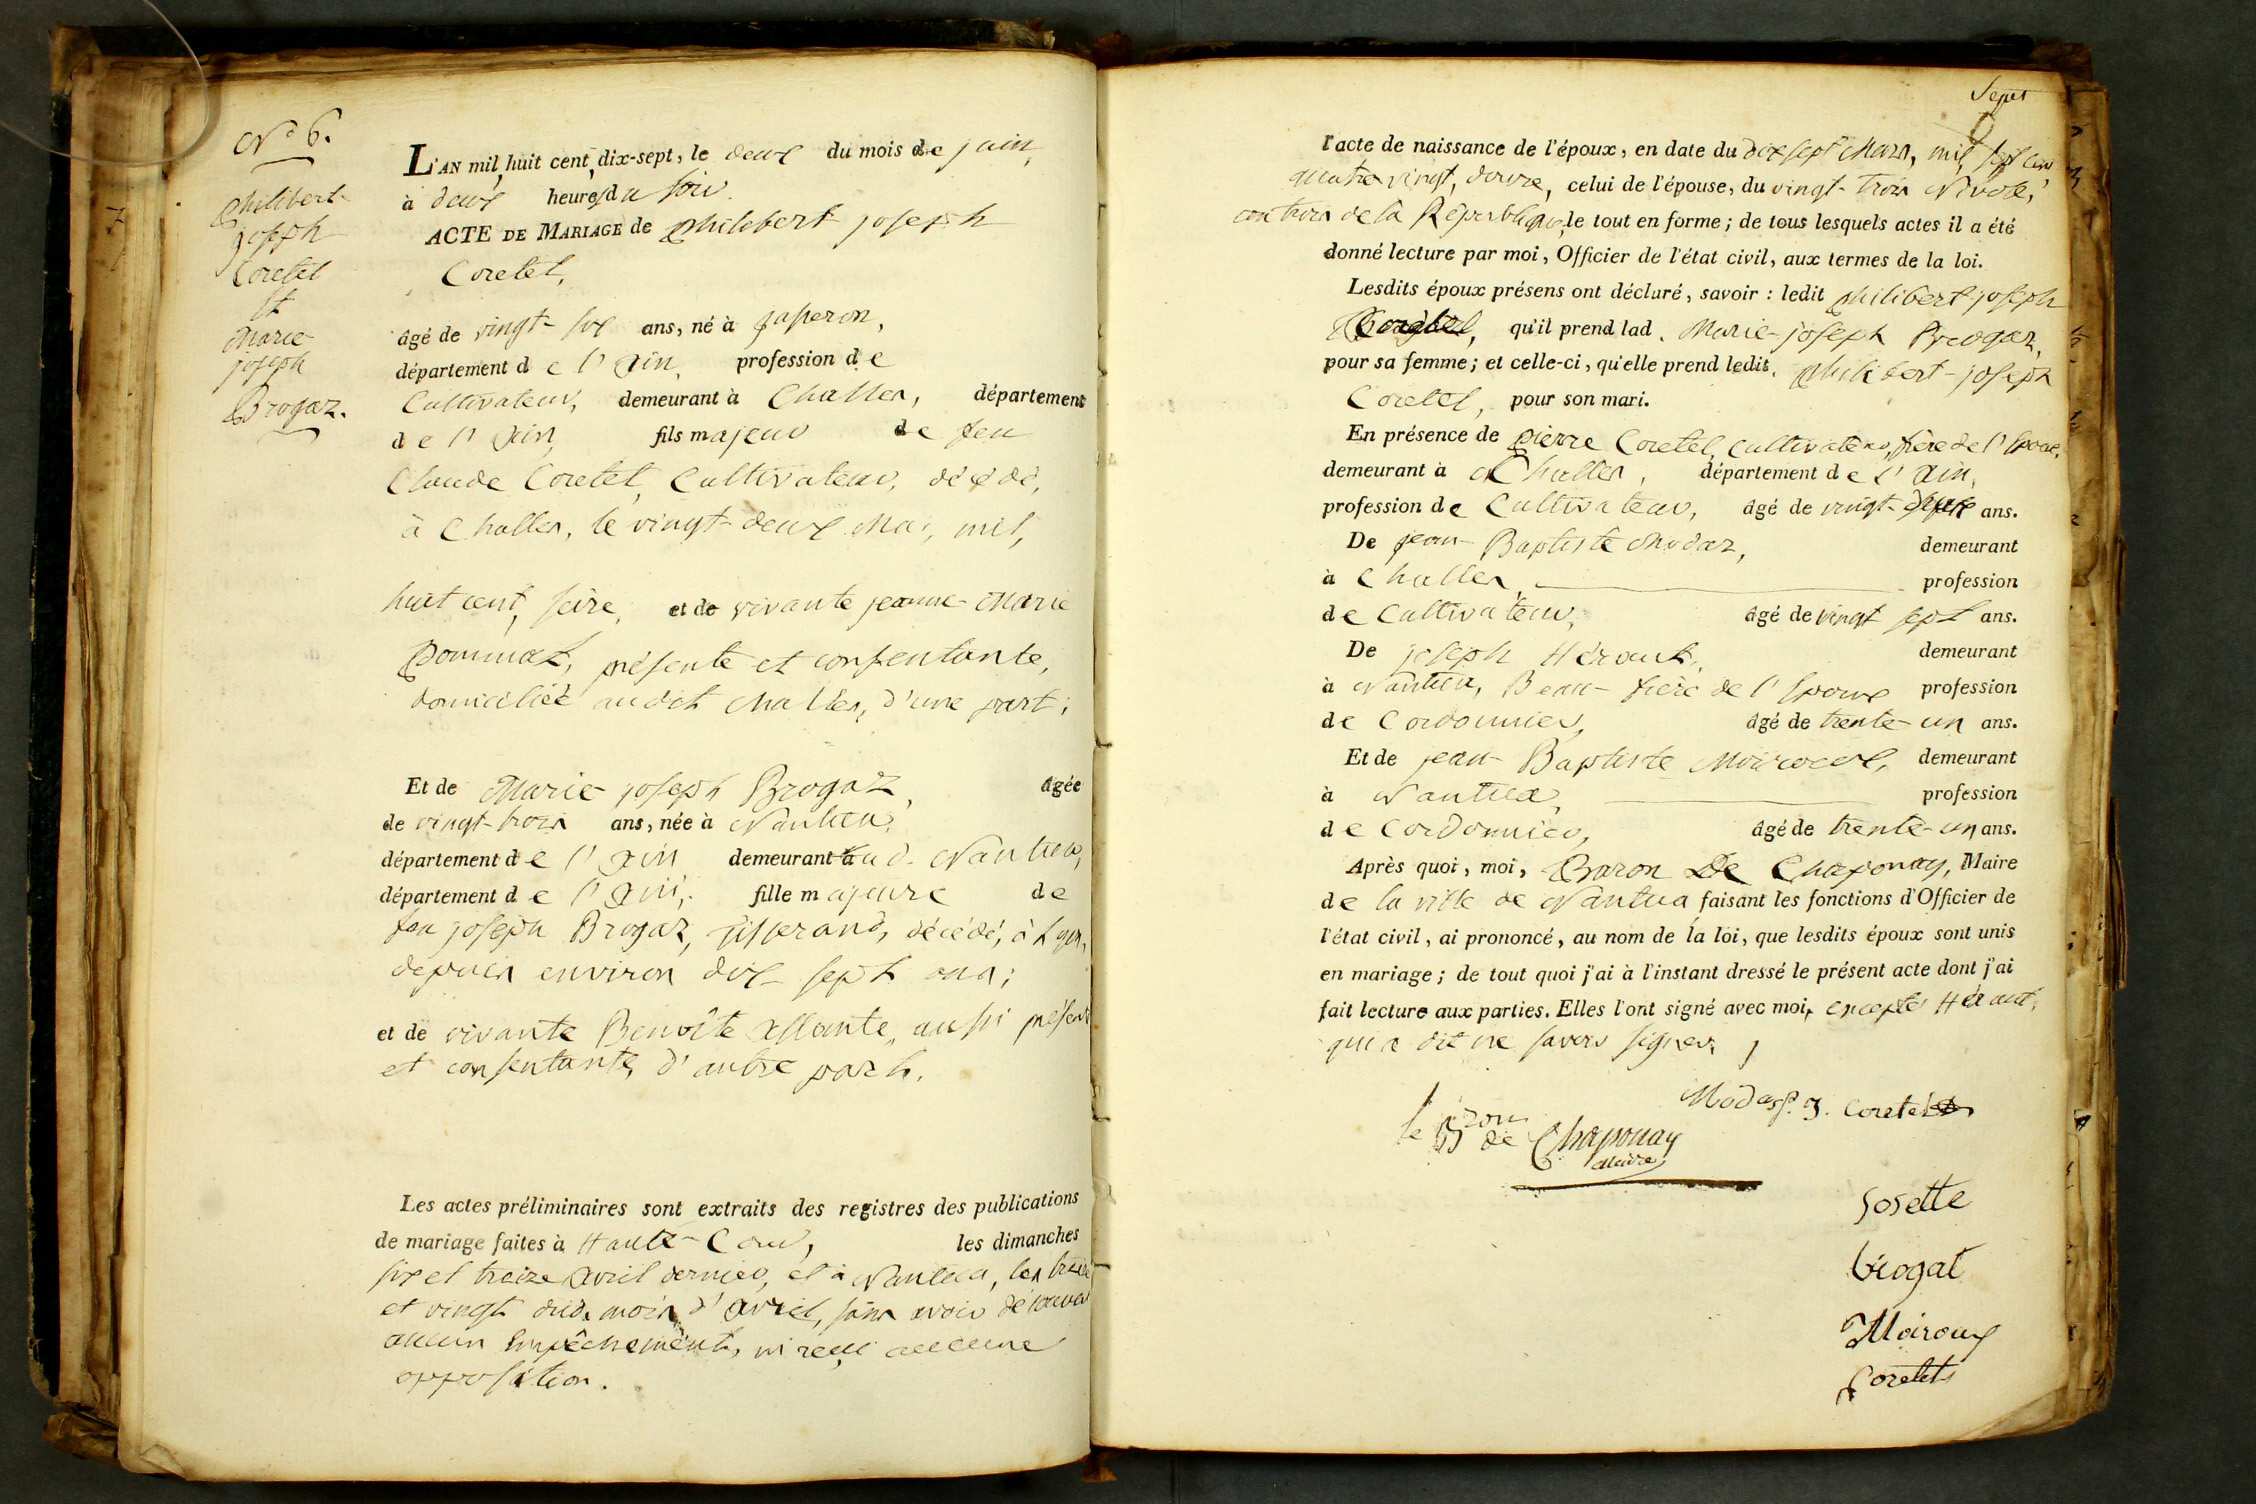 N.° 6.
Philibert-
joseph
Coretet
Et
Marie
joseph
Brogaz.
7
L'AN mil huit cent dix-sept, le deux du mois de juin,
à deux heures du soir.
ACTE DE MARIAGE de Philibert joseph
Coretet,
âgé de vingt-six ans, né à
département de l'ain, profession de
Cultivateur, demeurant à Challes, département
de l'ain, fils majeur de feu
Claude Coretet, Cultivateur, décédé,
à Challes, le vingt-deux Mai, mil,
huit cent, seize, et de vivante jeanne-Marie
présente et consentante,
domiciliée audit Challes, d'une part;
Et de Marie-joseph Brogaz, âgée
de vingt-trois ans, née à Nantua,
département de l'ain demeurant aud. Nantua,
département de l'ain; fille majeure de
feu joseph Brogaz, tisserand, décédé, à Lyon,
depuis environ dix-sept ans;
et de vivante Benoîte Allante, aussi présente
et consentante, d'autre part.
Les actes préliminaires sont extraits des registres des publications
de mariage faites à Haute-Cour, les dimanches
six et treize avril dernier, et à Nantua, les treize
et vingt dud. mois d'avril, sans avoir découvert
aucun Empêchement, ni reçu aucune
opposition.
Sept
l'acte de naissance de l'époux, en date du dix sept Mars, mil sept cent
quatre vingt, douze, celui de l'épouse, du vingt-trois Nivose,
an trois de la République, le tout en forme; de tous lesquels actes il a été
donné lecture par moi, Officier de l'état civil, aux termes de la loi.
Lesdits époux présens ont déclaré, savoir : ledit philibert joseph
Coretet, qu'il prend lad. Marie-joseph Brogaz,
pour sa femme; et celle-ci, qu'elle prend ledit. Philibert-joseph
Coretet, pour son mari.
En présence de pierre Coretet, cultivateur, frère de l'Epoux,
demeurant à Challes, département de l'ain,
profession de Cultivateur, âgé de vingt- ans.
De jean-Baptiste Modaz, demeurant
à Challes, profession
de Cultivateur, âgé de vingt sept ans.
De joseph Héraut, demeurant
à Nantua, Beau-frère de l'Epoux profession
de Cordonnier, âgé de trente-un ans.
Et de jean-Baptiste Moiroux, demeurant
à Nantua, profession
de Cordonnier, âgé de trente-un ans.
Après quoi, moi, Baron De Chaponay, Maire
de la ville de Nantua faisant les fonctions d'Officier de
l'état civil, ai prononcé, au nom de la loi, que lesdits époux sont unis
en mariage; de tout quoi j'ai à l'instant dressé le présent acte dont j'ai
fait lecture aux parties. Elles l'ont signé avec moi, excepté Héraut,
qui a dit ne savoir signer.
Modas P. J. Coretet
le Bon de Chaponay
Maire
Josette
brogat
Moiroux
Coretet